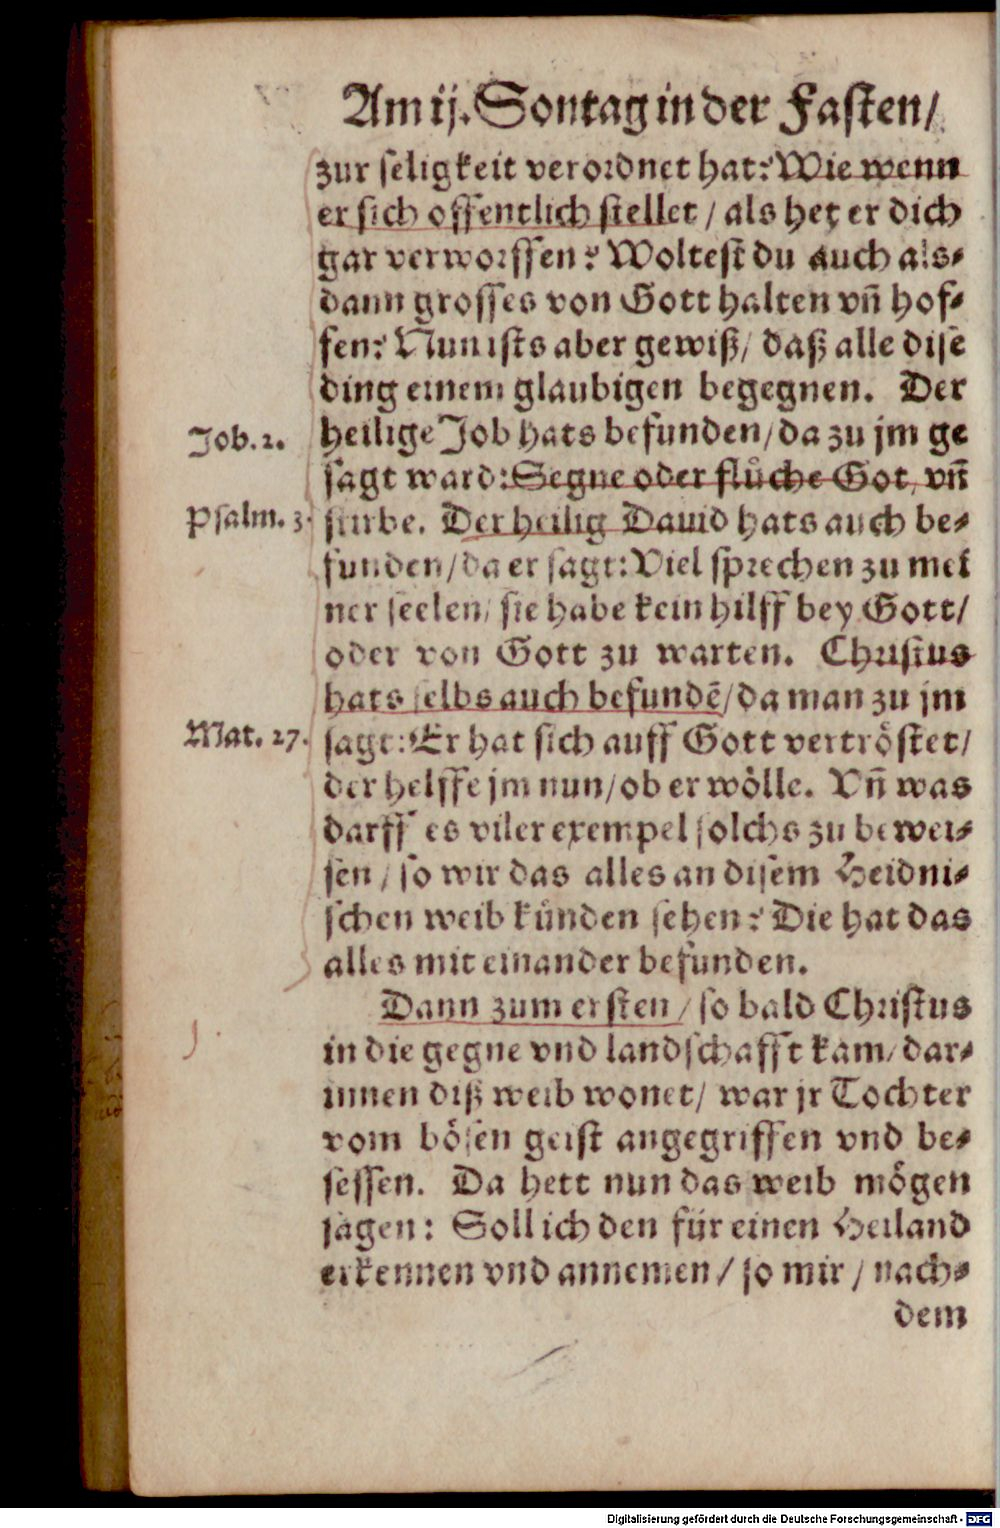 Am ij. Sontag in der Fasten/
zur seligkeit verordnet hat? Wie wenn
er sich offentlich stellet / als het er dich
gar verworffen? Woltest du auch als⸗
dann grosses von Gott halten vñ hof⸗
fen? Nun ists aber gewiß/ daß alle dise
ding einem glaubigen begegnen. Der
Job. 2. heilige Job hats befunden/da zu jm ge
sagt ward: Segne oder flůche Got, vñ
Psalm. 3. stirbe. Der heilig Dauid hats auch be⸗
funden/da er sagt: Viel sprechen zu mei
ner seelen/ sie habe kein hilff bey Gott/
oder von Gott zu warten. Christus
hats selbs auch befundē/da man zu jm
Mat. 27. sagt: Er hat sich auff Gott vertröstet/
der helffe jm nun/ob er wölle. Vñ was
darff es viler exempel solchs zu bewei⸗
sen / so wir das alles an disem Heidni⸗
schen weib künden sehen? Die hat das
alles mit einander befunden.
Dann zum ersten / so bald Christus
in die gegne vnd landschafft kam/ dar⸗
innen diß weib wonet/ war jr Tochter
vom bösen geist angegriffen vnd be⸗
sessen. Da hett nun das weib mögen
sagen: Soll ich den für einen Heiland
erkennen vnd annemen / so mir / nach⸗
dem
Digitalisierung gefördert durch die Deutsche Forschungsgemeinschaft - DFG